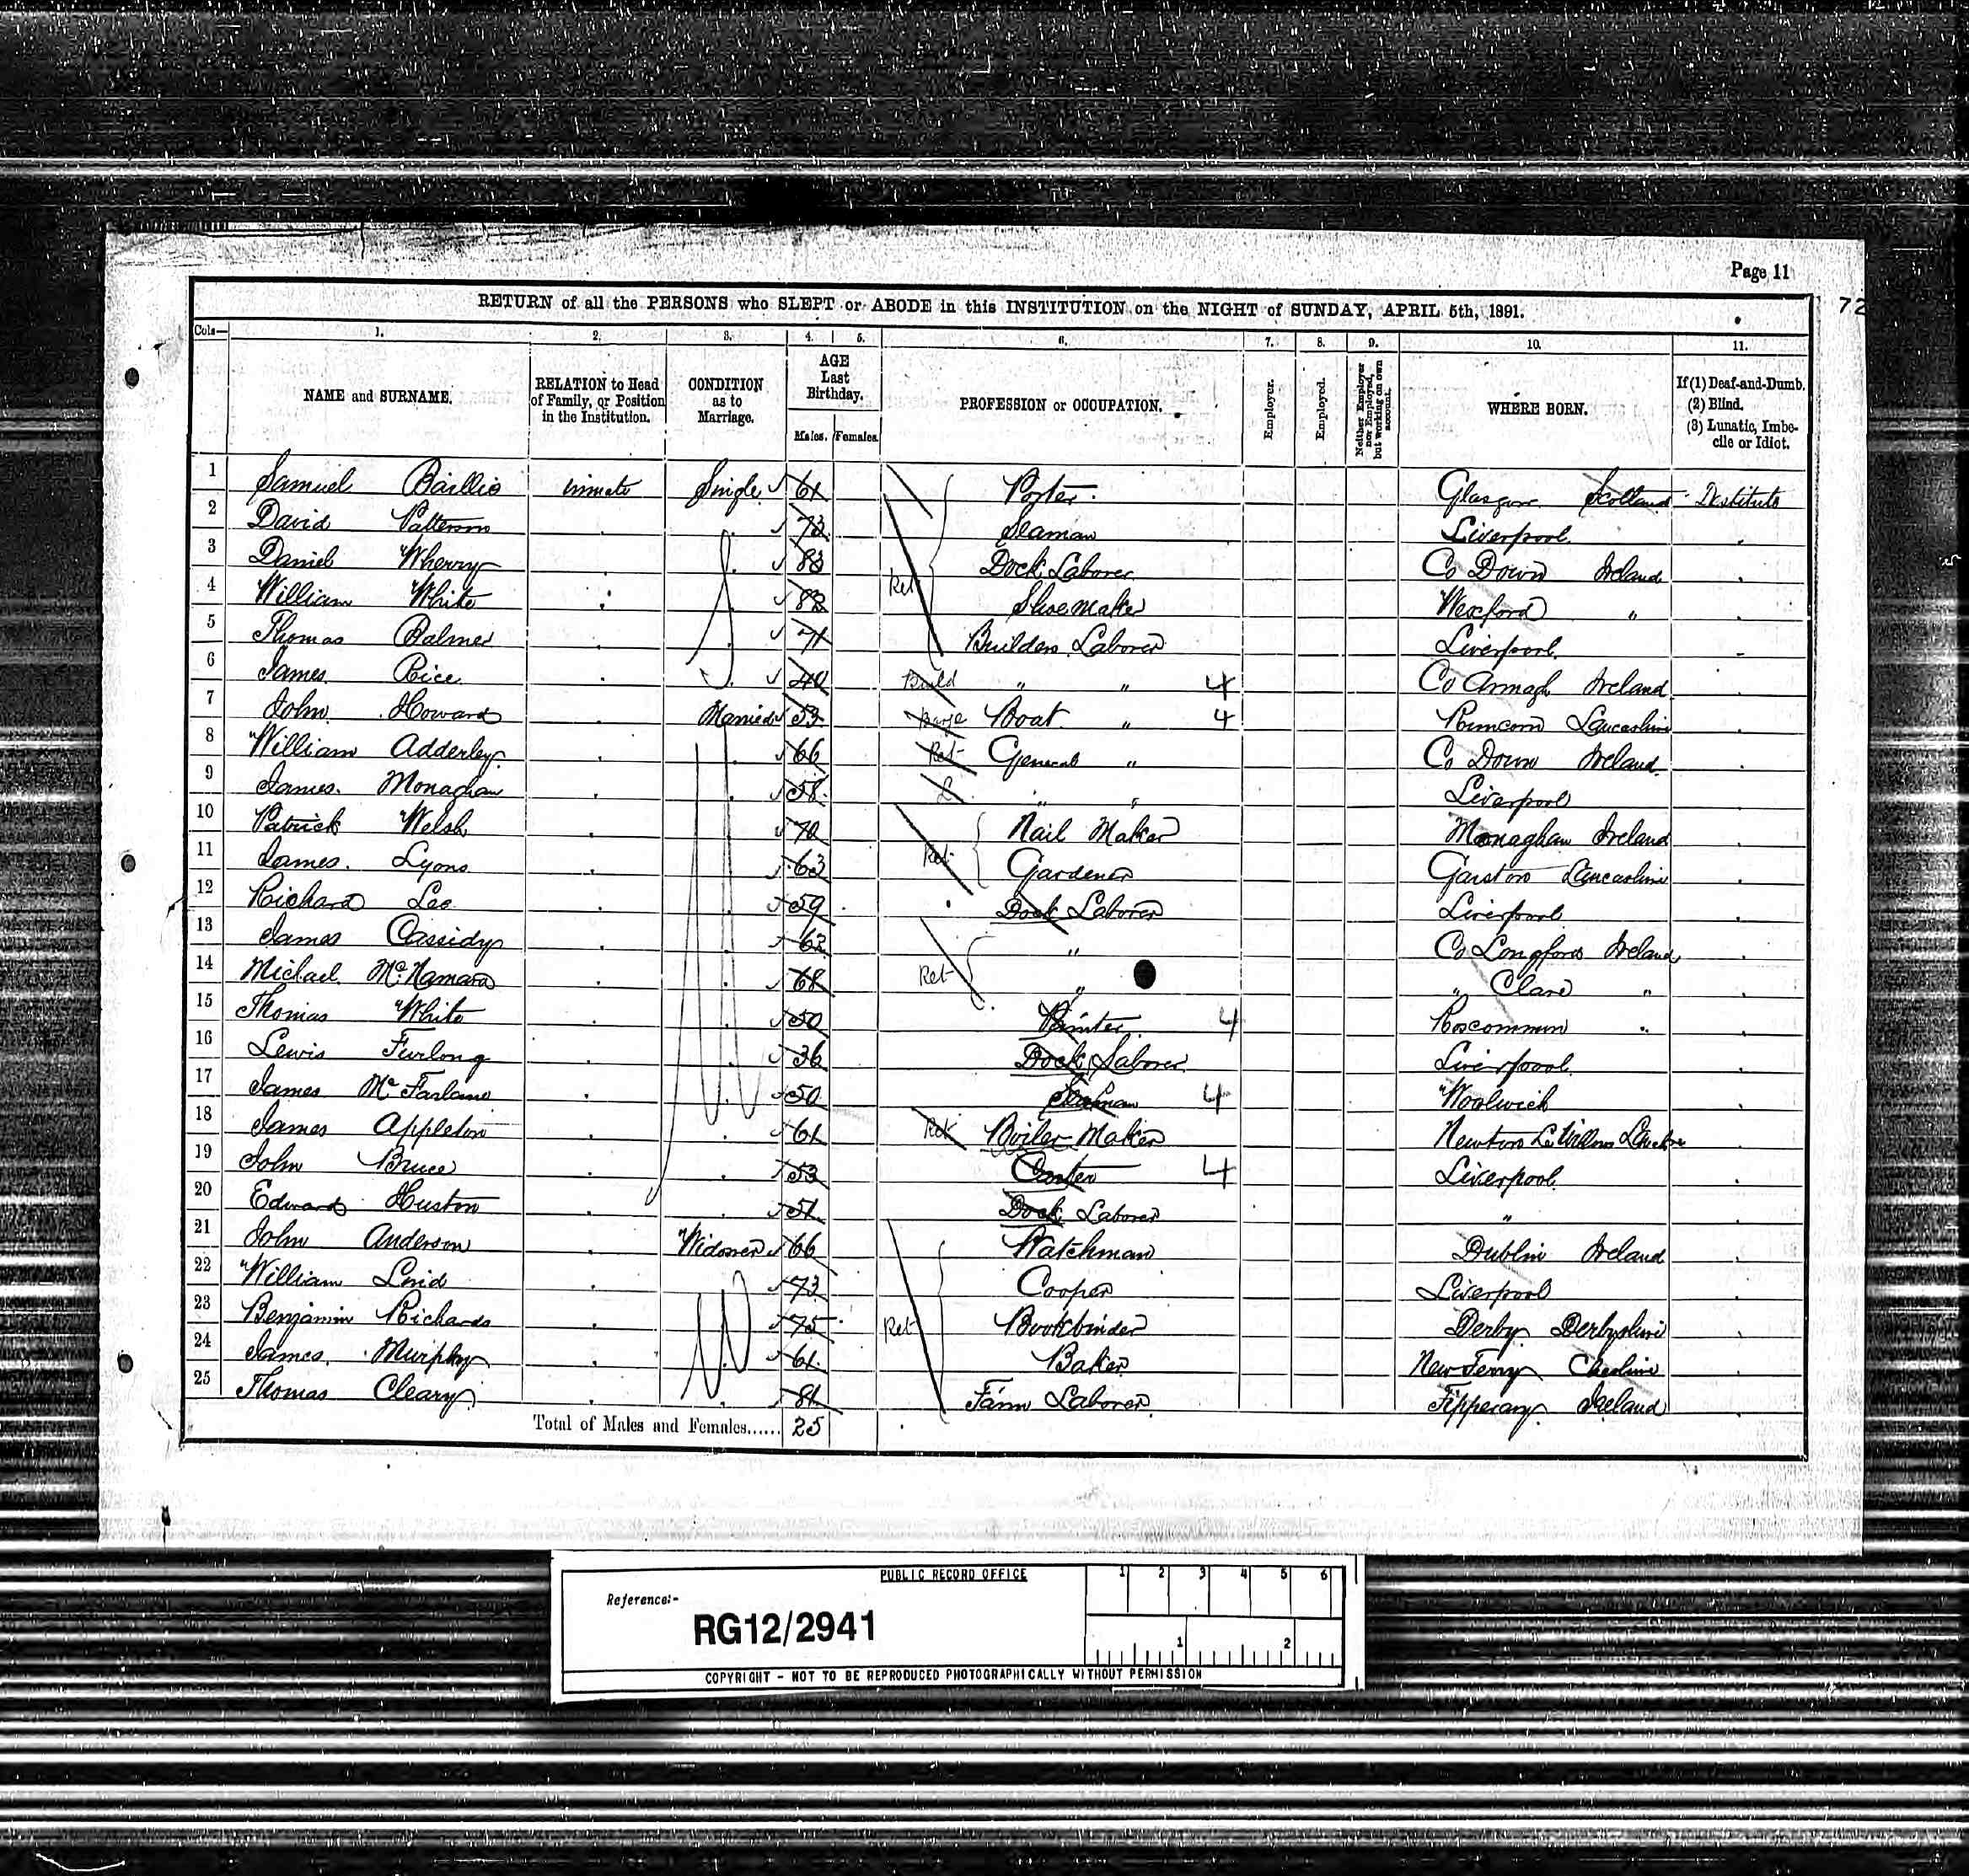 Page 11
72
RETURN of all the PERSONS who SLEPT or ABODE in this INSTITUTION on the NIGHT of SUNDAY, APRIL 5th, 1891.
Cols— 1. 2. 3. 4. 5. 6. 7. 8. 9. 10. 11.
NAME and SURNAME. RELATION to Head of Family, or Position in the Institution. CONDITION as to Marriage. AGE Last Birthday. Males. Females. PROFESSION or OCCUPATION. Employer. Employed. Neither Employer nor Employed, but working on own account. WHERE BORN. If (1) Deaf-and-Dumb. (2) Blind. (3) Lunatic, Imbecile or Idiot.
1 Samuel Baillie inmate Single 61 Porter Glasgow Scotland Destitute
2 David Patterson 73 Seaman Liverpool
3 Daniel Wherry 83 Dock Laborer Co Down Ireland
4 William White 83 Ret Shoe Maker Wexford "
5 Thomas Balmer 71 Builders Laborer Liverpool
6 James Rice 40 Build " " 4 Co Armagh Ireland
7 John Howard Married 53 Barge Boat " 4 Runcorn Lancashire
8 William Adderley 66 Ret General " Co Down Ireland
9 James Monaghan 58 " " Liverpool
10 Patrick Welsh 70 Nail Maker Monaghan Ireland
11 James Lyons 63 Ret Gardener Garston Lancashire
12 Richard Lee 59 Dock Laborer Liverpool
13 James Cassidy 63 " Co Longford Ireland
14 Michael McNamara 68 Ret " " Clare "
15 Thomas White 50 Painter 4 Roscommon "
16 Lewis Furlong 36 Dock Laborer Liverpool
17 James McFarlane 50 Seaman 4 Woolwich
18 James Appleton 61 Ret Boiler Maker Newton Le Willows
19 John Bruce 53 Carter 4 Liverpool
20 Edward Huston 51 Dock Laborer "
21 John Anderson Widower 66 Watchman Dublin Ireland
22 William 73 Cooper Liverpool
23 Benjamin Richards 75 Ret Bookbinder Derby Derbyshire
24 James Murphy 61 Baker New Ferry Cheshire
25 Thomas Cleary 81 Farm Laborer Tipperary Ireland
Total of Males and Females...... 25
PUBLIC RECORD OFFICE
1 2 3 4 5 6
Reference:-
RG12/2941
1 2
COPYRIGHT - NOT TO BE REPRODUCED PHOTOGRAPHICALLY WITHOUT PERMISSION